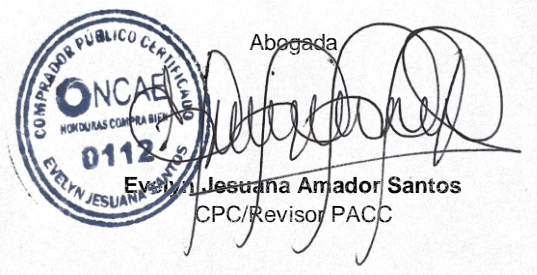 Abogada
COMPRADOR PÚBLICO CERTIFICADO
ONCAE
HONDURAS COMPRA BIEN
0112
EVELYN JESUANA SANTOS
Evelyn Jesuana Amador Santos
CPC/Revisor PACC